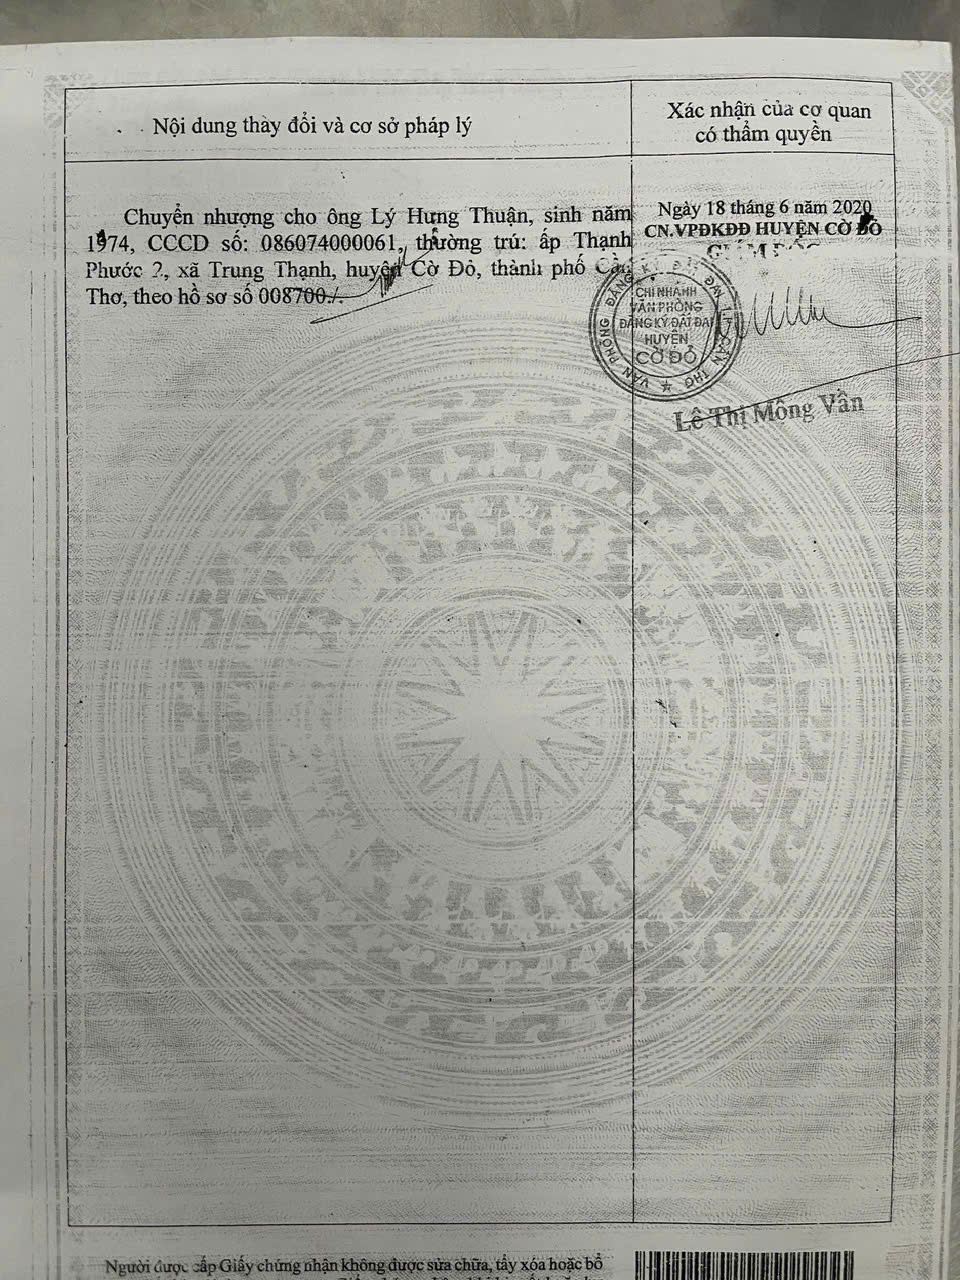 Nội dung thay đổi và cơ sở pháp lý
Xác nhận của cơ quan
có thẩm quyền
Chuyển nhượng cho ông Lý Hưng Thuận, sinh năm
1974, CCCD số: 086074000061, thường trú: ấp Thạnh
Phước 2, xã Trung Thạnh, huyện Cờ Đỏ, thành phố Cần
Thơ, theo hồ sơ số 008700./.
Ngày 18 tháng 6 năm 2020
CN.VPĐKĐĐ HUYỆN CỜ ĐỎ
GIÁM ĐỐC
VĂN PHÒNG ĐĂNG KÝ ĐẤT ĐAI T.P CẦN THƠ
CHI NHÁNH
VĂN PHÒNG
ĐĂNG KÝ ĐẤT ĐAI
HUYỆN
CỜ ĐỎ
Lê Thị Mộng Vân
Người được cấp Giấy chứng nhận không được sửa chữa, tẩy xóa hoặc bổ